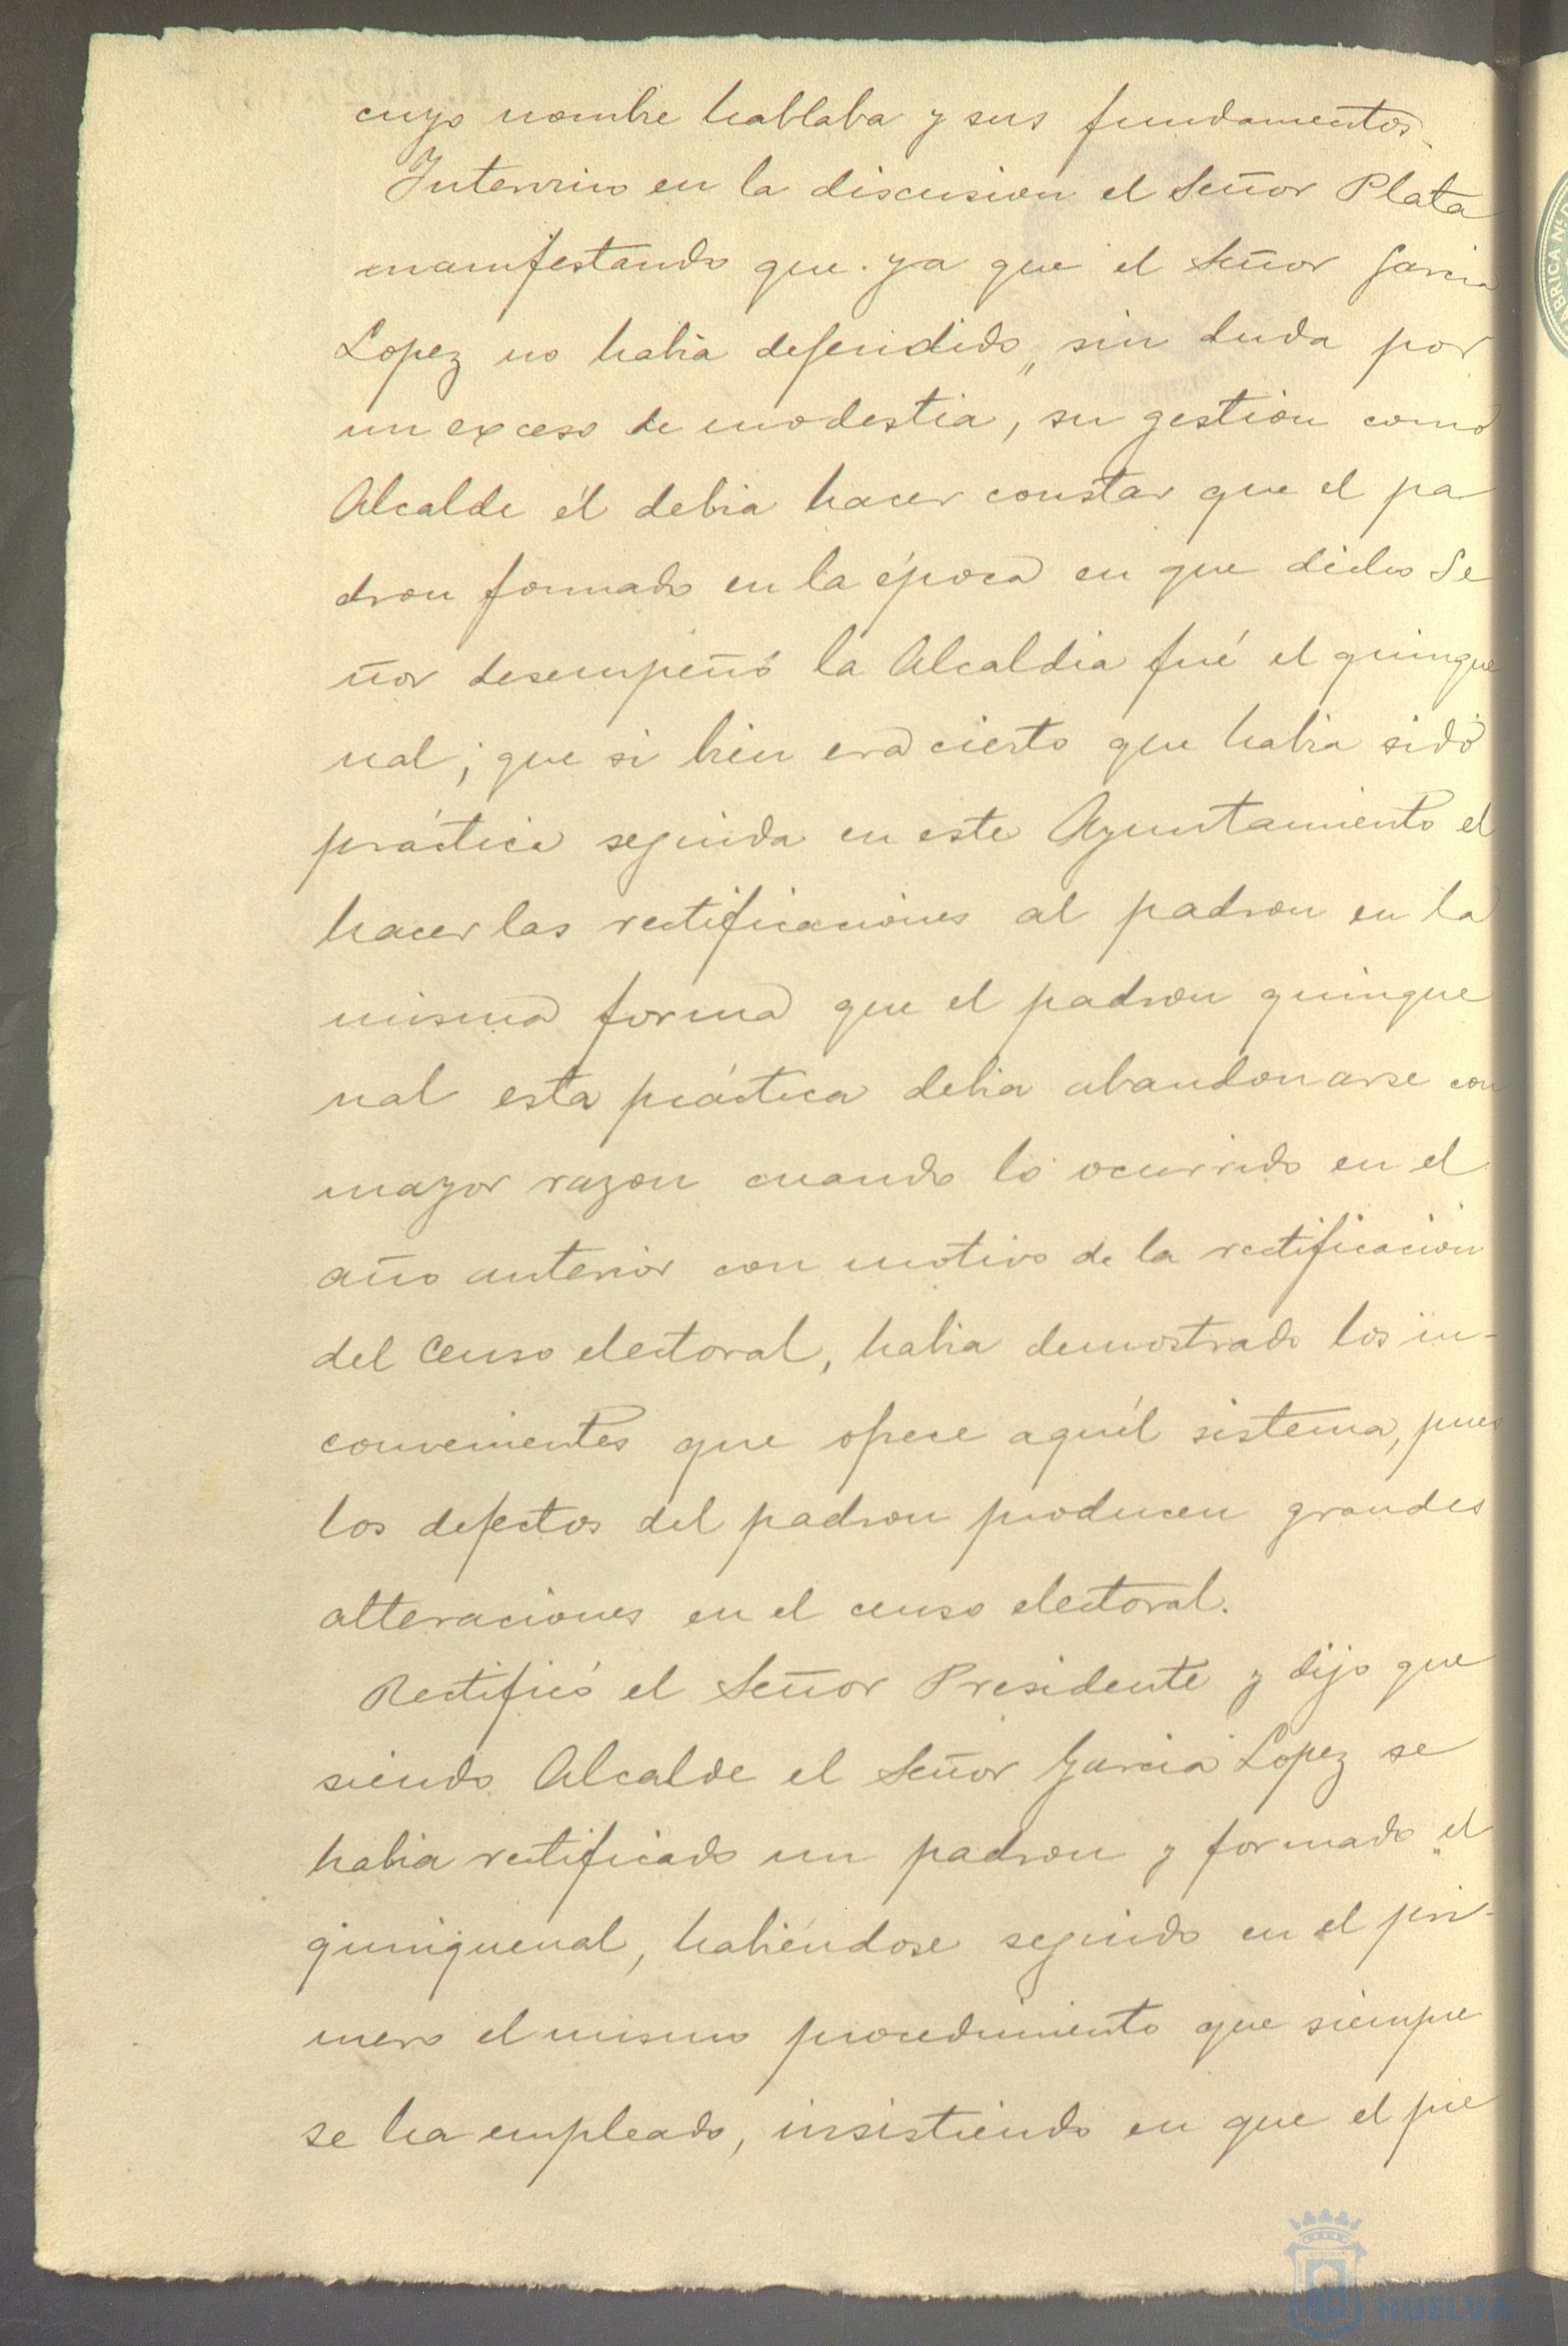 cuyo nombre hablaba y sus fundamentos.
Intervino en la discusion el Señor Plata
manifestando que ya que el Señor Garcia
Lopez no habia defendido, sin duda por
un exceso de modestia, su gestion como
Alcalde él debia hacer constar que el pa
dron formado en la época en que dicho Se
ñor desempeñó la Alcaldia fué el quinque
nal; que si bien era cierto que habia sido
práctica seguida en este Ayuntamiento el
hacer las rectificaciones al padron en la
misma forma que el padron quinque
nal esta práctica debia abandonarse con
mayor razon cuando lo ocurrido en el
año anterior con motivo de la rectificación
del Censo electoral, habia demostrado los in-
convenientes que ofrece aquél sistema, pues
los defectos del padron producen grandes
alteraciones en el censo electoral.
Rectificó el Señor Presidente y dijo que
siendo Alcalde el Señor Garcia Lopez se
habia rectificado un padron y formado el
quinquenal, habiéndose seguido en el pri-
mero el mismo procedimiento que siempre
se ha empleado, insistiendo en que el pre
HUELVA